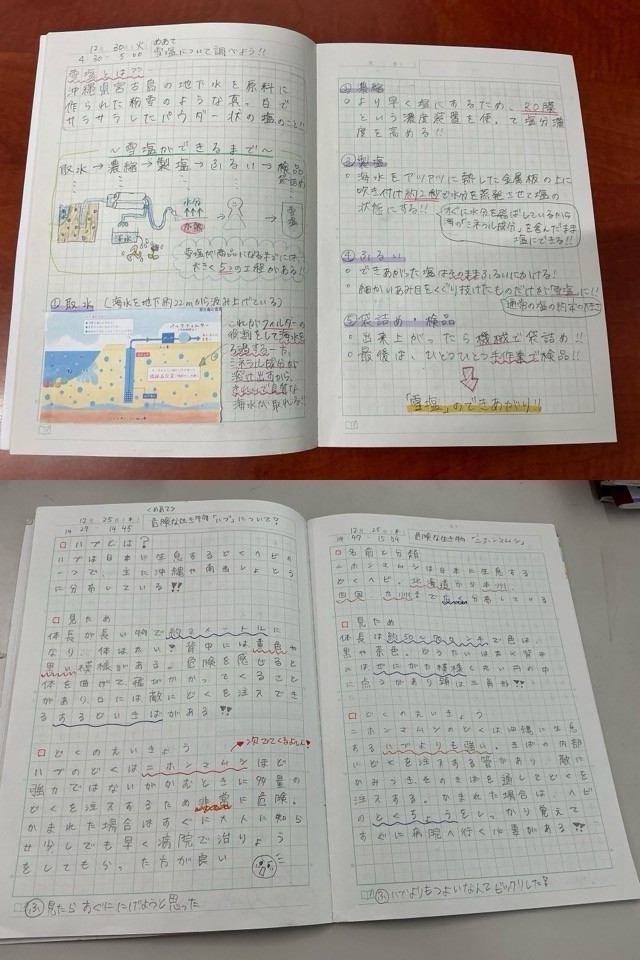 12月 30日(火)
4:30-5:00
めあて
雪塩について調べよう!!
雪塩とは??
沖縄県宮古島の地下水を原料に
作られた粉雪のような真っ白で
サラサラしたパウダー状の塩のこと!!
～雪塩ができるまで～
取水→濃縮→製塩→ふるい→検品
袋詰め
水分
雪塩
雪塩が商品になるまでには、
大きく5つの工程がある!!
①取水 (海水を地下約22mから汲み上げている)
これがフィルターの
役割をして海水を
ろ過する一方、
ミネラル成分が
溶け出すから、
海水が取れる!!
②濃縮
○より早く塩にするため、RO膜
という濃度装置を使って塩分濃
度を高める!!
③製塩
○海水をアツアツに熱した金属板の上に
吹き付け約2秒で水分を蒸発させて塩の
状態にする!!
すぐに水分を飛ばしているから
海の「ミネラル成分」を含んだまま
塩にできる!!
④ふるい
○できあがった塩はそのままふるいにかける!
○細かいあみ目をくぐり抜けたものだけが雪塩に!!
⑤袋詰め・検品
○出来上がったら機械で袋詰め!!
○最後は、ひとつひとつ手作業で検品!!
「雪塩」のできあがり!!
12月 25日(木)
14:29-14:45
<めあて>
危険な生き物「ハブ」について?
□ハブとは?
ハブは日本に生息するどくヘビの
一つで、主に沖縄や南西しょとう
に分布している!!
□見た目
体長が長い物で約2メートルに
なり、体はたい? 背中には黄色や
黒い模様がある。危険を感じると
体を曲げて、
があり口には敵にどくを注入でき
るするどいきばがある!!
□どくのえいきょう
次ででてくるよん!
ハブのどくはニホンマムシほど
強力ではないがかむときに多量の
どくを注入するため非常に危険。
かまれた場合はすぐに大人に知ら
せ少しでも早く病院で治りょう
をしてもらった方が良い
ふ 見たらすぐににげようと思った
12月 25日(木)
14:47-15:04
危険な生き物「ニホンマムシ」
□名前と分類
ニホンマムシは日本に生息する
どくヘビ。北海道から本州、
四国、九州まで広く分布している
□見た目
体長は約50～60センチで色は、
黒や茶色。どうたいは太く背中
にはぜにがた模様という円の中
に点があり頭は三角形!!
□どくのえいきょう
ニホンマムシのどくは沖縄に生息
するハブよりも強い。きばの内部
にどくを注入する管があり、敵に
かみつきそのきばを通してどくを
注入する。かまれた場合は、ヘビ
のとくちょうをしっかり覚えて
すぐに病院へ行く必要がある!!
ふ ハブよりもつよいなんてビックリした?